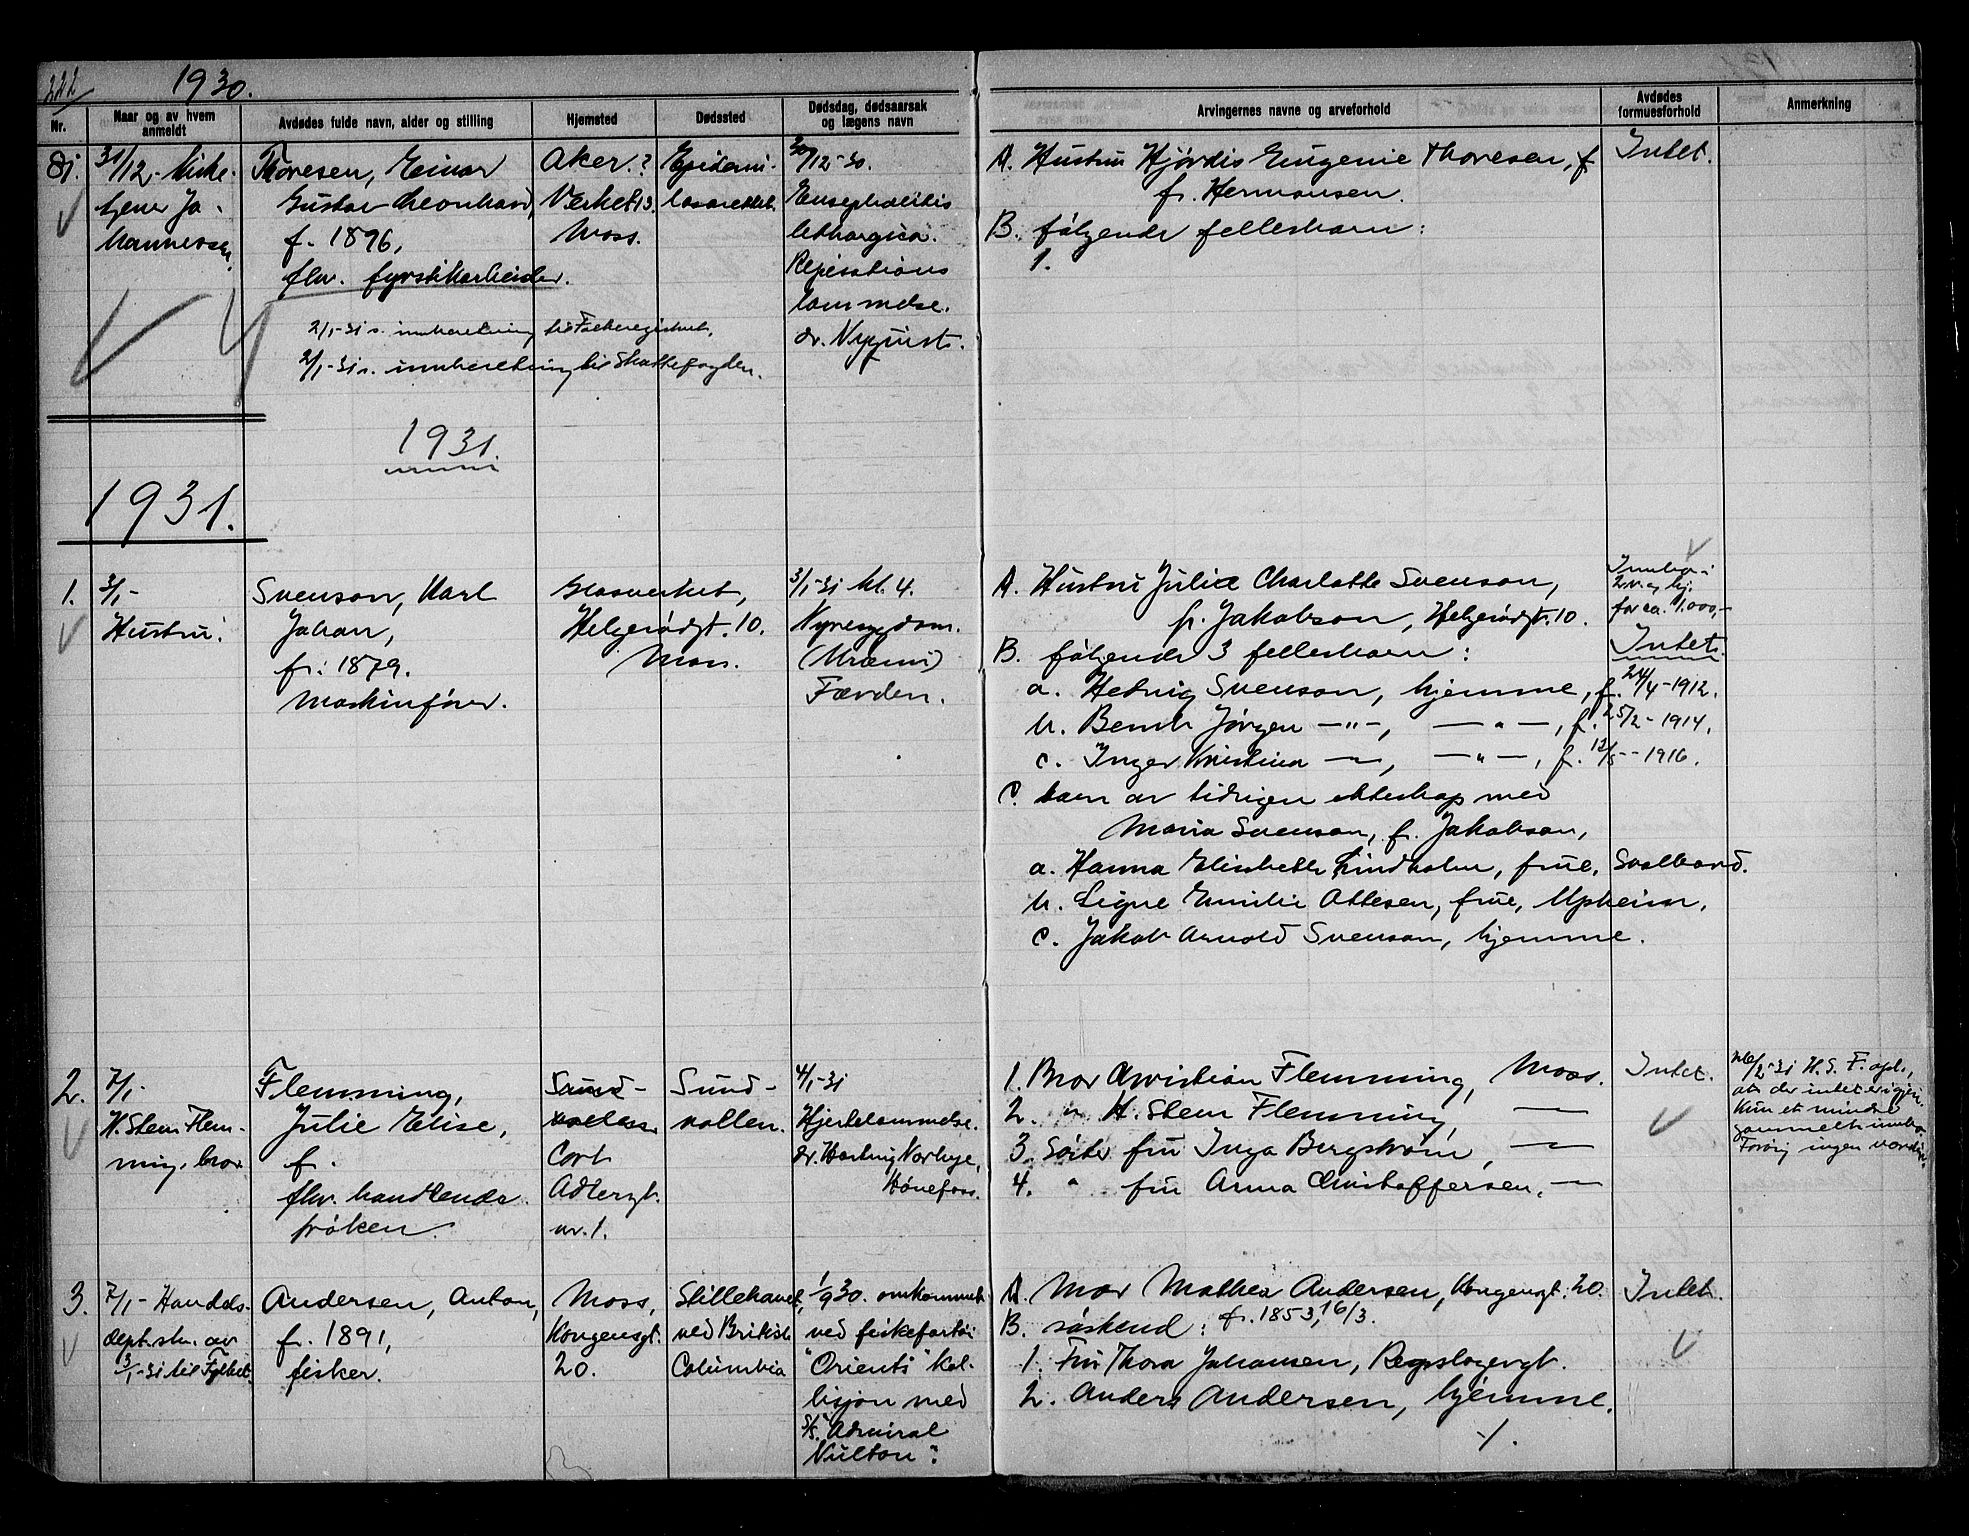 222
1930.
Nr.
Naar og av hvem anmeldt
Avdødes fulde navn, alder og stilling
Hjemsted
Dødssted
Dødsdag, dødsaarsak og lægens navn
Arvingernes navne og arveforhold
Avdødes formuesforhold
Anmerkning
81.
31/12-
Johannessen.
Thoresen, Einar
Gustav Leonhard,
f. 1896,
fhv. fyrstikarbeider.
2/1-31 s. innberetning til Folkeregistret.
2/1-31 s. innberetning til Skattefogden.
Aker.?
Verket 13.
Moss.
Epidemi-
lasarettet.
30/12-30.
Encephalitis
lethargica.
Respirations
lammelse.
dr. Nyquist.
A. Hustru Hjørdis Eugenie Thoresen, f.
f. Hermansen.
B. følgende fellesbarn:
1.
Intet.
1931.
1931.
1.
3/1-
Hustru.
Svenson, Karl
Johan,
f: 1879.
Maskinfører.
Glasverket,
Helgerødgt. 10.
Moss.
3/1-31 kl. 4.
Nyresygdom.
(Uræmi)
Færden.
A. Hustru Julie Charlotte Svenson,
f. Jakobson, Helgerødgt. 10.
B. følgende 3 fellesbarn:
a. Hedvig Svenson, hjemme, f. 24/4-1912.
b. Bernh Jørgen -"-, -"-, f. 25/2-1914.
c. Inger Kristina -"-, -"-, f. 12/5--1916.
C. barn av tidligere ekteskap med
Maria Svenson, f. Jakobson,
a. Hanna Elisabeth Lindholm, frue, Svalbard.
b. Signe Emilie Ottesen, frue, Opheim.
c. Jakob Arnold Svenson, hjemme.
Innbo i
2 v. og kj.
for ca. 1.000,-
Intet.
2.
7/1-
H. Stem Flem-
ming, bror
Flemming,
Julie Elise,
f.
fhv. handlende
frøken.
Sund-
vollen.
Cort
Adlergt.
nr. 1.
Sund-
vollen.
4/1-31
Hjertelammelse.
dr. Hartvig Norbye,
Hønefoss.
1. Bror Christian Flemming, Moss.
2. " H. Stem Flemming, -"-
3. Søster fru Inga Bergstrøm, -"-
4. " fru Anna Christoffersen, -"-
Intet.
26/2-31 H. S. F. opl.,
at der intet eies.
Kun et mindre
gammelt innbo.
Forøvrig ingen verdier.
3.
7/1- Handels-
dept. skr. av
3/1-31 til Fylket.
Andersen, Anton,
f. 1891,
fisker.
Moss,
Kongensgt.
20.
Stillehavet,
ved British
Columbia
1/9 30. omkommet
ved fiskefartøi
"Orients" kol-
lisjon med
S/S. "Admiral
Nulton".
A. Mor Mathea Andersen, Kongensgt. 20.
f. 1853, 16/3.
B. søskend:
1. Fru Thora Johansen, Repslagergt.
2. Anders Andersen, hjemme.
Intet.